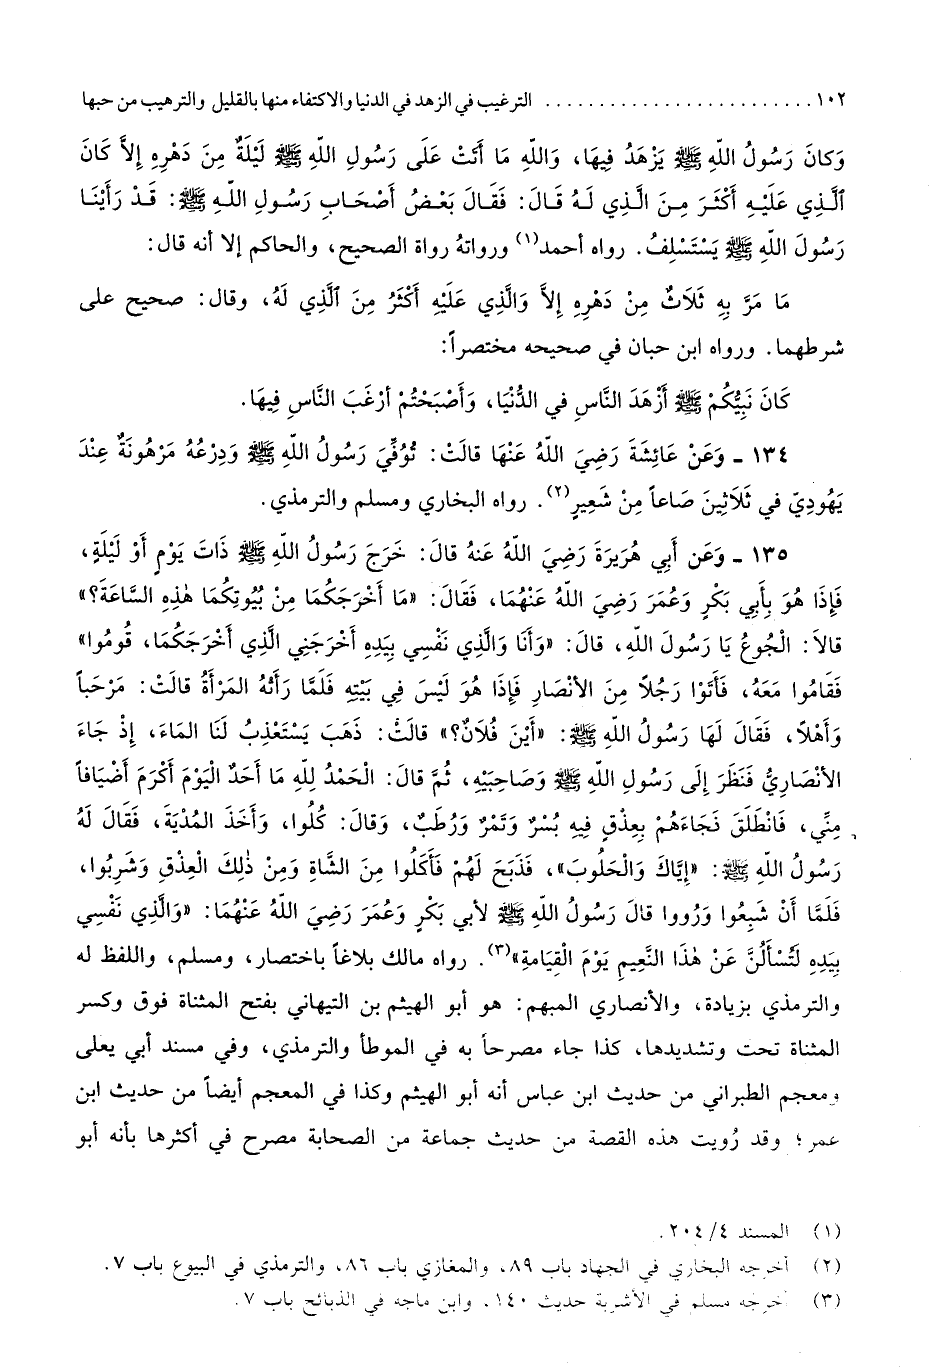 ١٠٢ ......................... الترغيب في الزهد في الدنيا والاكتفاء منها بالقليل والترهيب من حبها
وَكانَ رَسُولُ اللّهِ ﷺ يَزْهَدُ فِيهَا، وَاللّهِ مَا أَتَتْ عَلَى رَسُولِ اللّهِ ﷺ لَيْلَةٌ مِنَ دَهْرِهِ إلاَّ كَانَ
ٱلَّذِي عَلَيْهِ أَكْثَرَ مِنَ الَّذِي لَهُ قَالَ: فَقَالَ بَعْضُ أَصْحَابِ رَسُولِ اللّهِ ﷺ: قَدْ رَأَيْنَا
رَسُولَ اللّهِ ﷺ يَسْتَسْلِفُ. رواه أحمد(١) ورواتهُ رواة الصحيح، والحاكم إلا أنه قال:
مَا مَرَّ بِهِ ثَلَاثٌ مِنْ دَهْرِهِ إلاَّ وَالَّذِي عَلَيْهِ أَكْثَرُ مِنَ ٱلَّذِي لَهُ، وقال: صحيح على
شرطهما. ورواه ابن حبان في صحيحه مختصراً:
كَانَ نَبِيُّكُمْ ﷺ أَزْهَدَ النَّاسِ في الدُّنْيَا، وَأَصْبَحْتُمْ أَرْغَبَ النَّاسِ فِيهَا.
١٣٤ ـ وَعَنْ عَائِشَةَ رَضِيَ اللّهُ عَنْهَا قالَتْ: تُوُفِّيَ رَسُولُ اللّهِ ﷺ وَدِرْعُهُ مَرْهُونَةٌ عِنْدَ
يَهُودِيّ في ثَلَاثِينَ صَاعاً مِنْ شَعِيرٍ(٢). رواه البخاري ومسلم والترمذي.
١٣٥ ـ وَعَن أَبِي هُرَيْرَةَ رَضِيَ اللّهُ عَنهُ قالَ: خَرَجَ رَسُولُ اللّهِ ﷺ ذَاتَ يَوْمٍ أَوْ لَيْلَةٍ،
فَإِذَا هُوَ بِأَبِي بَكْرٍ وَعُمَرَ رَضِيَ اللّهُ عَنْهُمَا، فَقَالَ: «مَا أَخْرَجَكُمَا مِنْ بُيُوتِكُمَا هٰذِهِ السَّاعَةَ؟»
قالاَ: الْجُوعُ يَا رَسُولَ اللّهِ، قالَ: «وَأَنَا وَالَّذِي نَفْسِي بِيَدِهِ أَخْرَجَنِي الَّذِي أَخْرَجَكُمَا، قُومُوا»
فَقَامُوا مَعَهُ، فَأَتَوْا رَجُلاً مِنَ الأنْصَارِ فَإِذَا هُوَ لَيْسَ فِي بَيْتِهِ فَلَمَّا رَأَتْهُ المَرْأَةُ قالَتْ: مَرْحَباً
وَأَهْلاً، فَقَالَ لَهَا رَسُولُ اللّهِ ﷺ: «أَيْنَ فُلَانٌ؟» قالَتْ: ذَهَبَ يَسْتَعْذِبُ لَنَا المَاءَ، إِذْ جَاءَ
الأنْصَارِيُّ فَنَظَرَ إلَى رَسُولِ اللّهِ ﷺ وَصَاحِبَيْهِ، ثُمَّ قالَ: الْحَمْدُ لِلّهِ مَا أَحَدٌ الْيَوْمَ أَكْرَمَ أَضْيَافاً
مِنِّي، فَانْطَلَقَ فَجَاءَهُمْ بِعِذْقٍ فِيهِ بُسْرٌ وَتَمْرٌ وَرُطَبٌ، وَقالَ: كُلُوا، وَأَخَذَ المُدْيَةَ، فَقَالَ لَهُ
رَسُولُ اللّهِ ﷺ: «إيَّاكَ وَالْحَلُوبَ»، فَذَبَحَ لَهُمْ فَأَكَلُوا مِنَ الشَّاةِ وَمِنْ ذٰلِكَ الْعِذْقِ وَشَرِبُوا،
فَلَمَّا أَنْ شَبِعُوا وَرُووا قالَ رَسُولُ اللّهِ ﷺ لأبي بَكْرٍ وَعُمَرَ رَضِيَ اللّهُ عَنْهُمَا: «وَالَّذِي نَفْسِي
بِيَدِهِ لَتُسْأَلُنَّ عَنْ هٰذَا النَّعِيمِ يَوْمَ الْقِيَامةِ»(٣). رواه مالك بلاغاً باختصار، ومسلم، واللفظ له
والترمذي بزيادة، والأنصاري المبهم: هو أبو الهيثم بن التيهاني بفتح المثناة فوق وكسر
المثناة تحت وتشديدها، كذا جاء مصرحاً به في الموطأ والترمذي، وفي مسند أبي يعلى
ومعجم الطبراني من حديث ابن عباس أنه أبو الهيثم وكذا في المعجم أيضاً من حديث ابن
عمر؛ وقد رُويت هذه القصة من حديث جماعة من الصحابة مصرح في أكثرها بأنه أبو
(١) المسند ٤/ ٢٠٤.
(٢) أخرجه البخاري في الجهاد باب ٨٩، والمغازي باب ٨٦، والترمذي في البيوع باب ٧.
(٣) أخرجه مسلم في الأشربة حديث ١٤٠، وابن ماجه في الذبائح باب ٧.